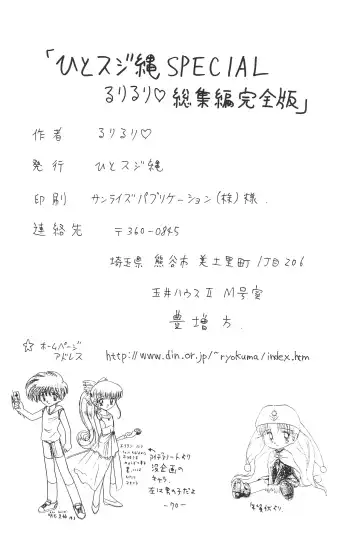 「ひとスジ縄 SPECIAL
るりるり♡ 総集編完全版」
作者 るりるり♡
発行 ひとスジ縄
印刷 サンライズパブリケーション(株)様.
連絡先 〒360-0845
埼玉県 熊谷市 美土里町 1丁目206
玉井ハウスⅡ M号室
豊増方.
☆ホームページアドレス http://www.din.or.jp/~ryokuma/index.htm
アイデアノートより
没企画の
キャラ.
左は男の子だよ
-70-